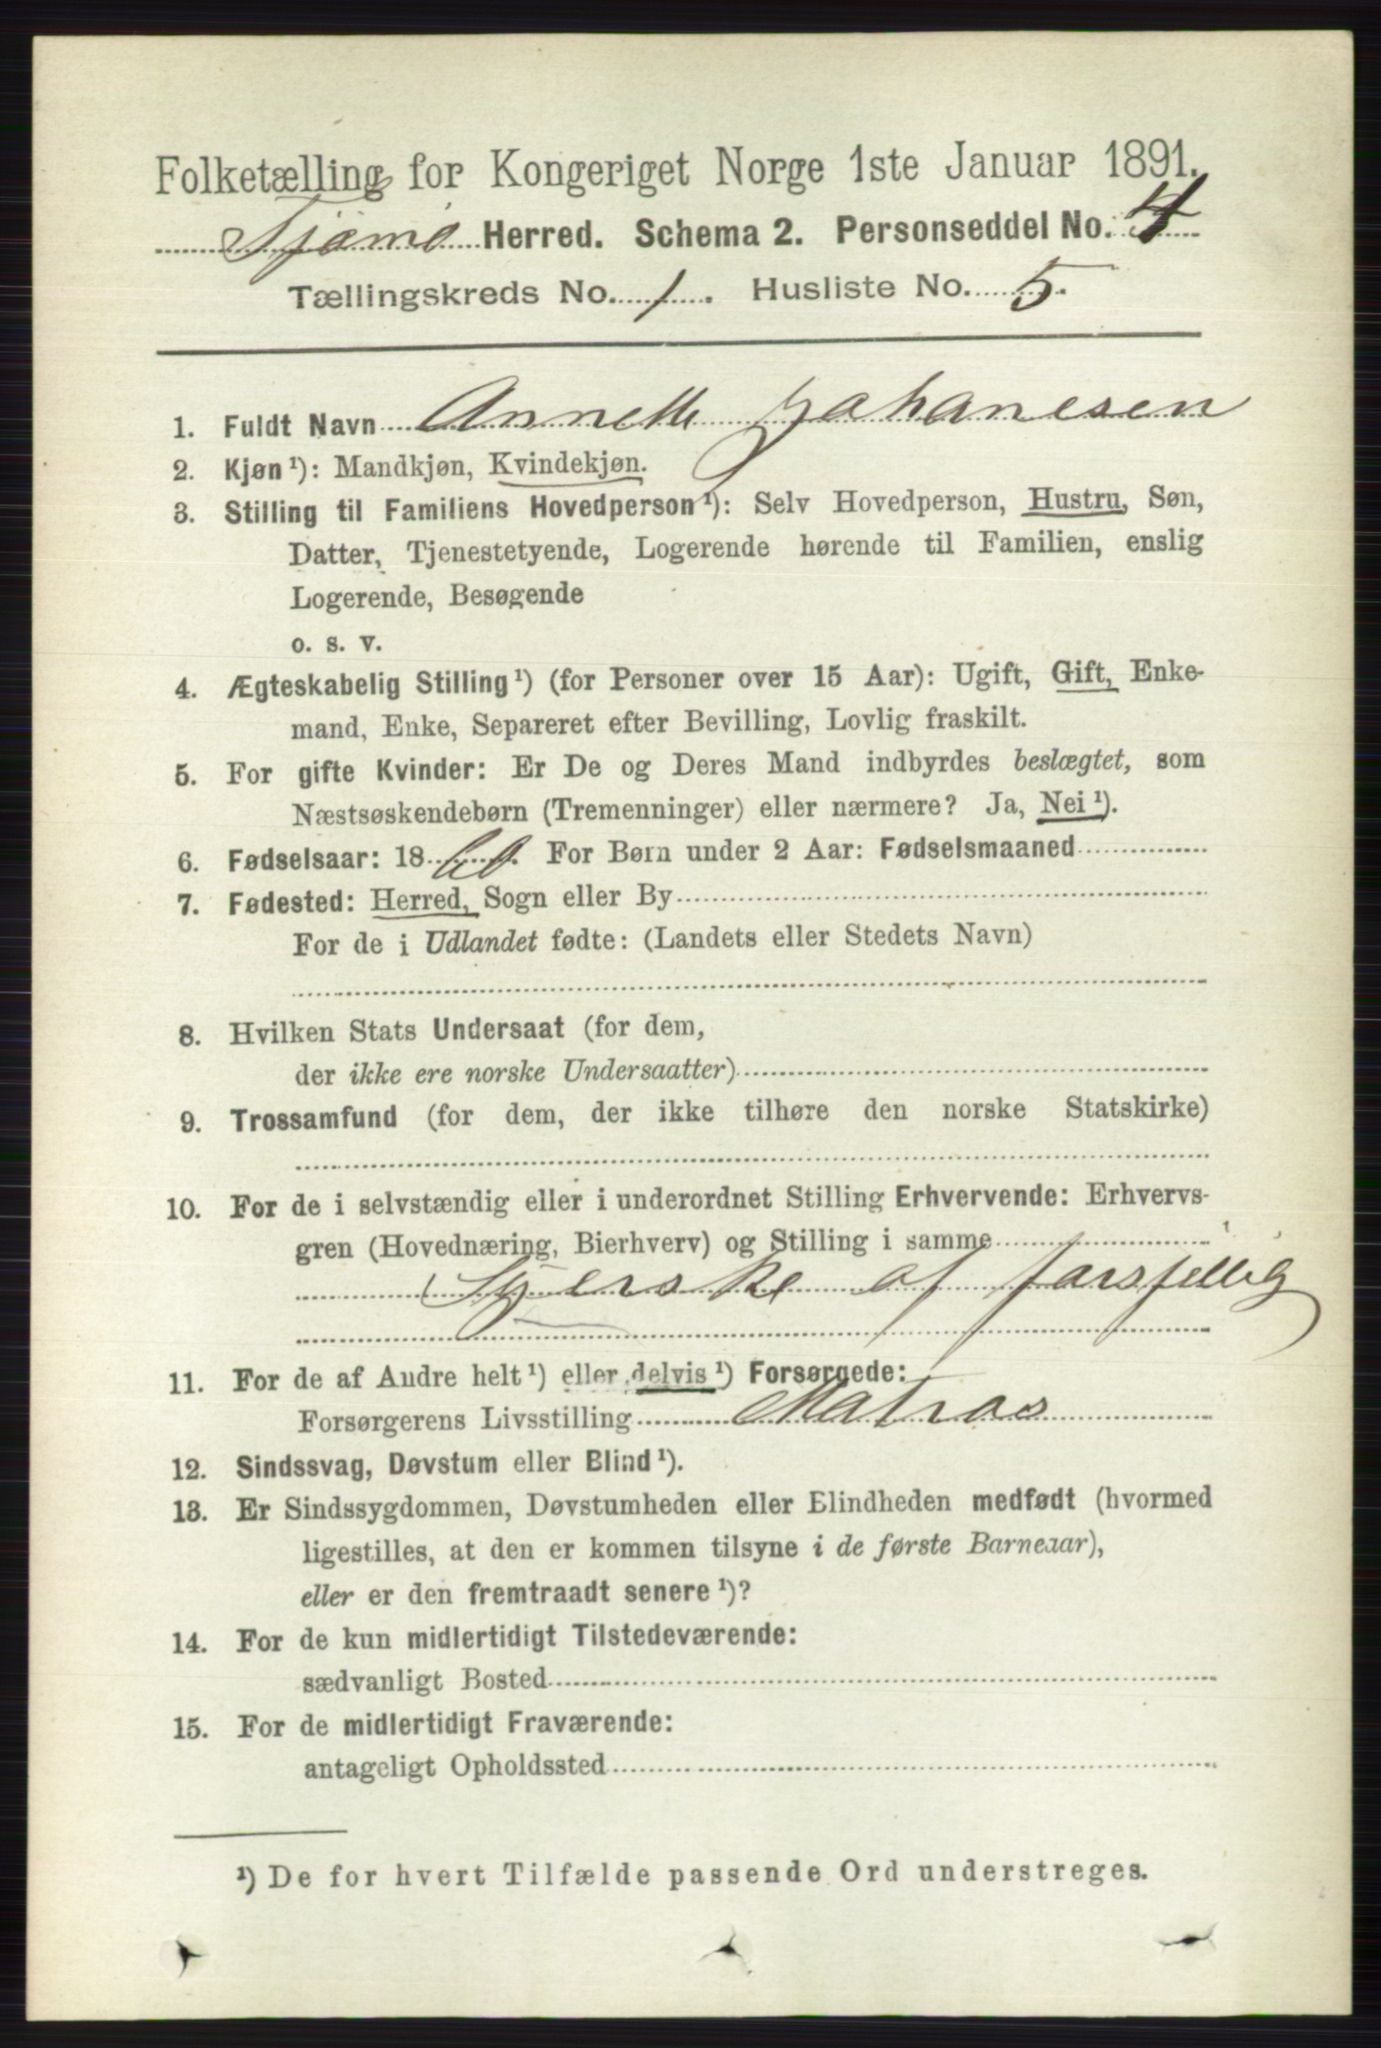 Folketælling for Kongeriget Norge 1ste Januar 1891.
Tjømø Herred. Schema 2. Personseddel No. 4
Tællingskreds No. 1. Husliste No. 5.
1. Fuldt Navn Annette Johanesen
2. Kjøn¹): Mandkjøn, Kvindekjøn.
3. Stilling til Familiens Hovedperson¹): Selv Hovedperson, Hustru, Søn,
Datter, Tjenestetyende, Logerende hørende til Familien, enslig
Logerende, Besøgende
o. s. v.
4. Ægteskabelig Stilling¹) (for Personer over 15 Aar): Ugift, Gift, Enke-
mand, Enke, Separeret efter Bevilling, Lovlig fraskilt.
5. For gifte Kvinder: Er De og Deres Mand indbyrdes beslægtet, som
Næstsøskendebørn (Tremenninger) eller nærmere? Ja, Nei¹).
6. Fødselsaar: 1860. For Børn under 2 Aar: Fødselsmaaned
7. Fødested: Herred, Sogn eller By
For de i Udlandet fødte: (Landets eller Stedets Navn)
8. Hvilken Stats Undersaat (for dem,
der ikke ere norske Undersaatter)
9. Trossamfund (for dem, der ikke tilhøre den norske Statskirke)
10. For de i selvstændig eller i underordnet Stilling Erhvervende: Erhvervs-
gren (Hovednæring, Bierhverv) og Stilling i samme
Syerske af
11. For de af Andre helt¹) eller delvis¹) Forsørgede:
Forsørgerens Livsstilling Matros
12. Sindssvag, Døvstum eller Blind¹).
13. Er Sindssygdommen, Døvstumheden eller Blindheden medfødt (hvormed
ligestilles, at den er kommen tilsyne i de første Barneaar),
eller er den fremtraadt senere¹)?
14. For de kun midlertidigt Tilstedeværende:
sædvanligt Bosted
15. For de midlertidigt Fraværende:
antageligt Opholdssted
¹) De for hvert Tilfælde passende Ord understreges.